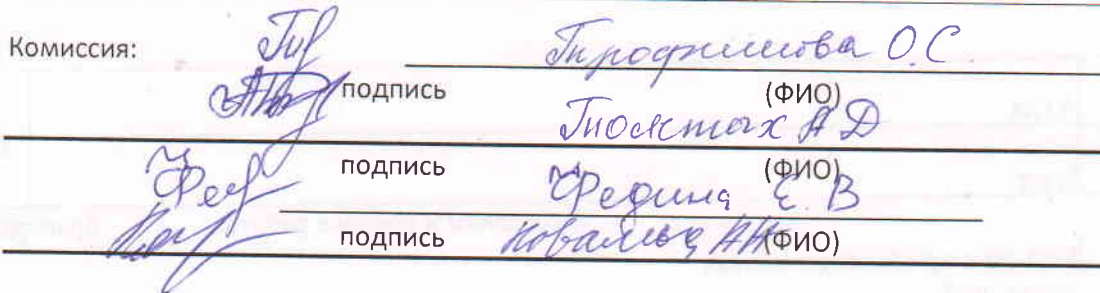 Комиссия: Трофимова О.С
подпись (ФИО)
Толстых А Д
подпись (ФИО)
Федина Е. В
подпись (ФИО)